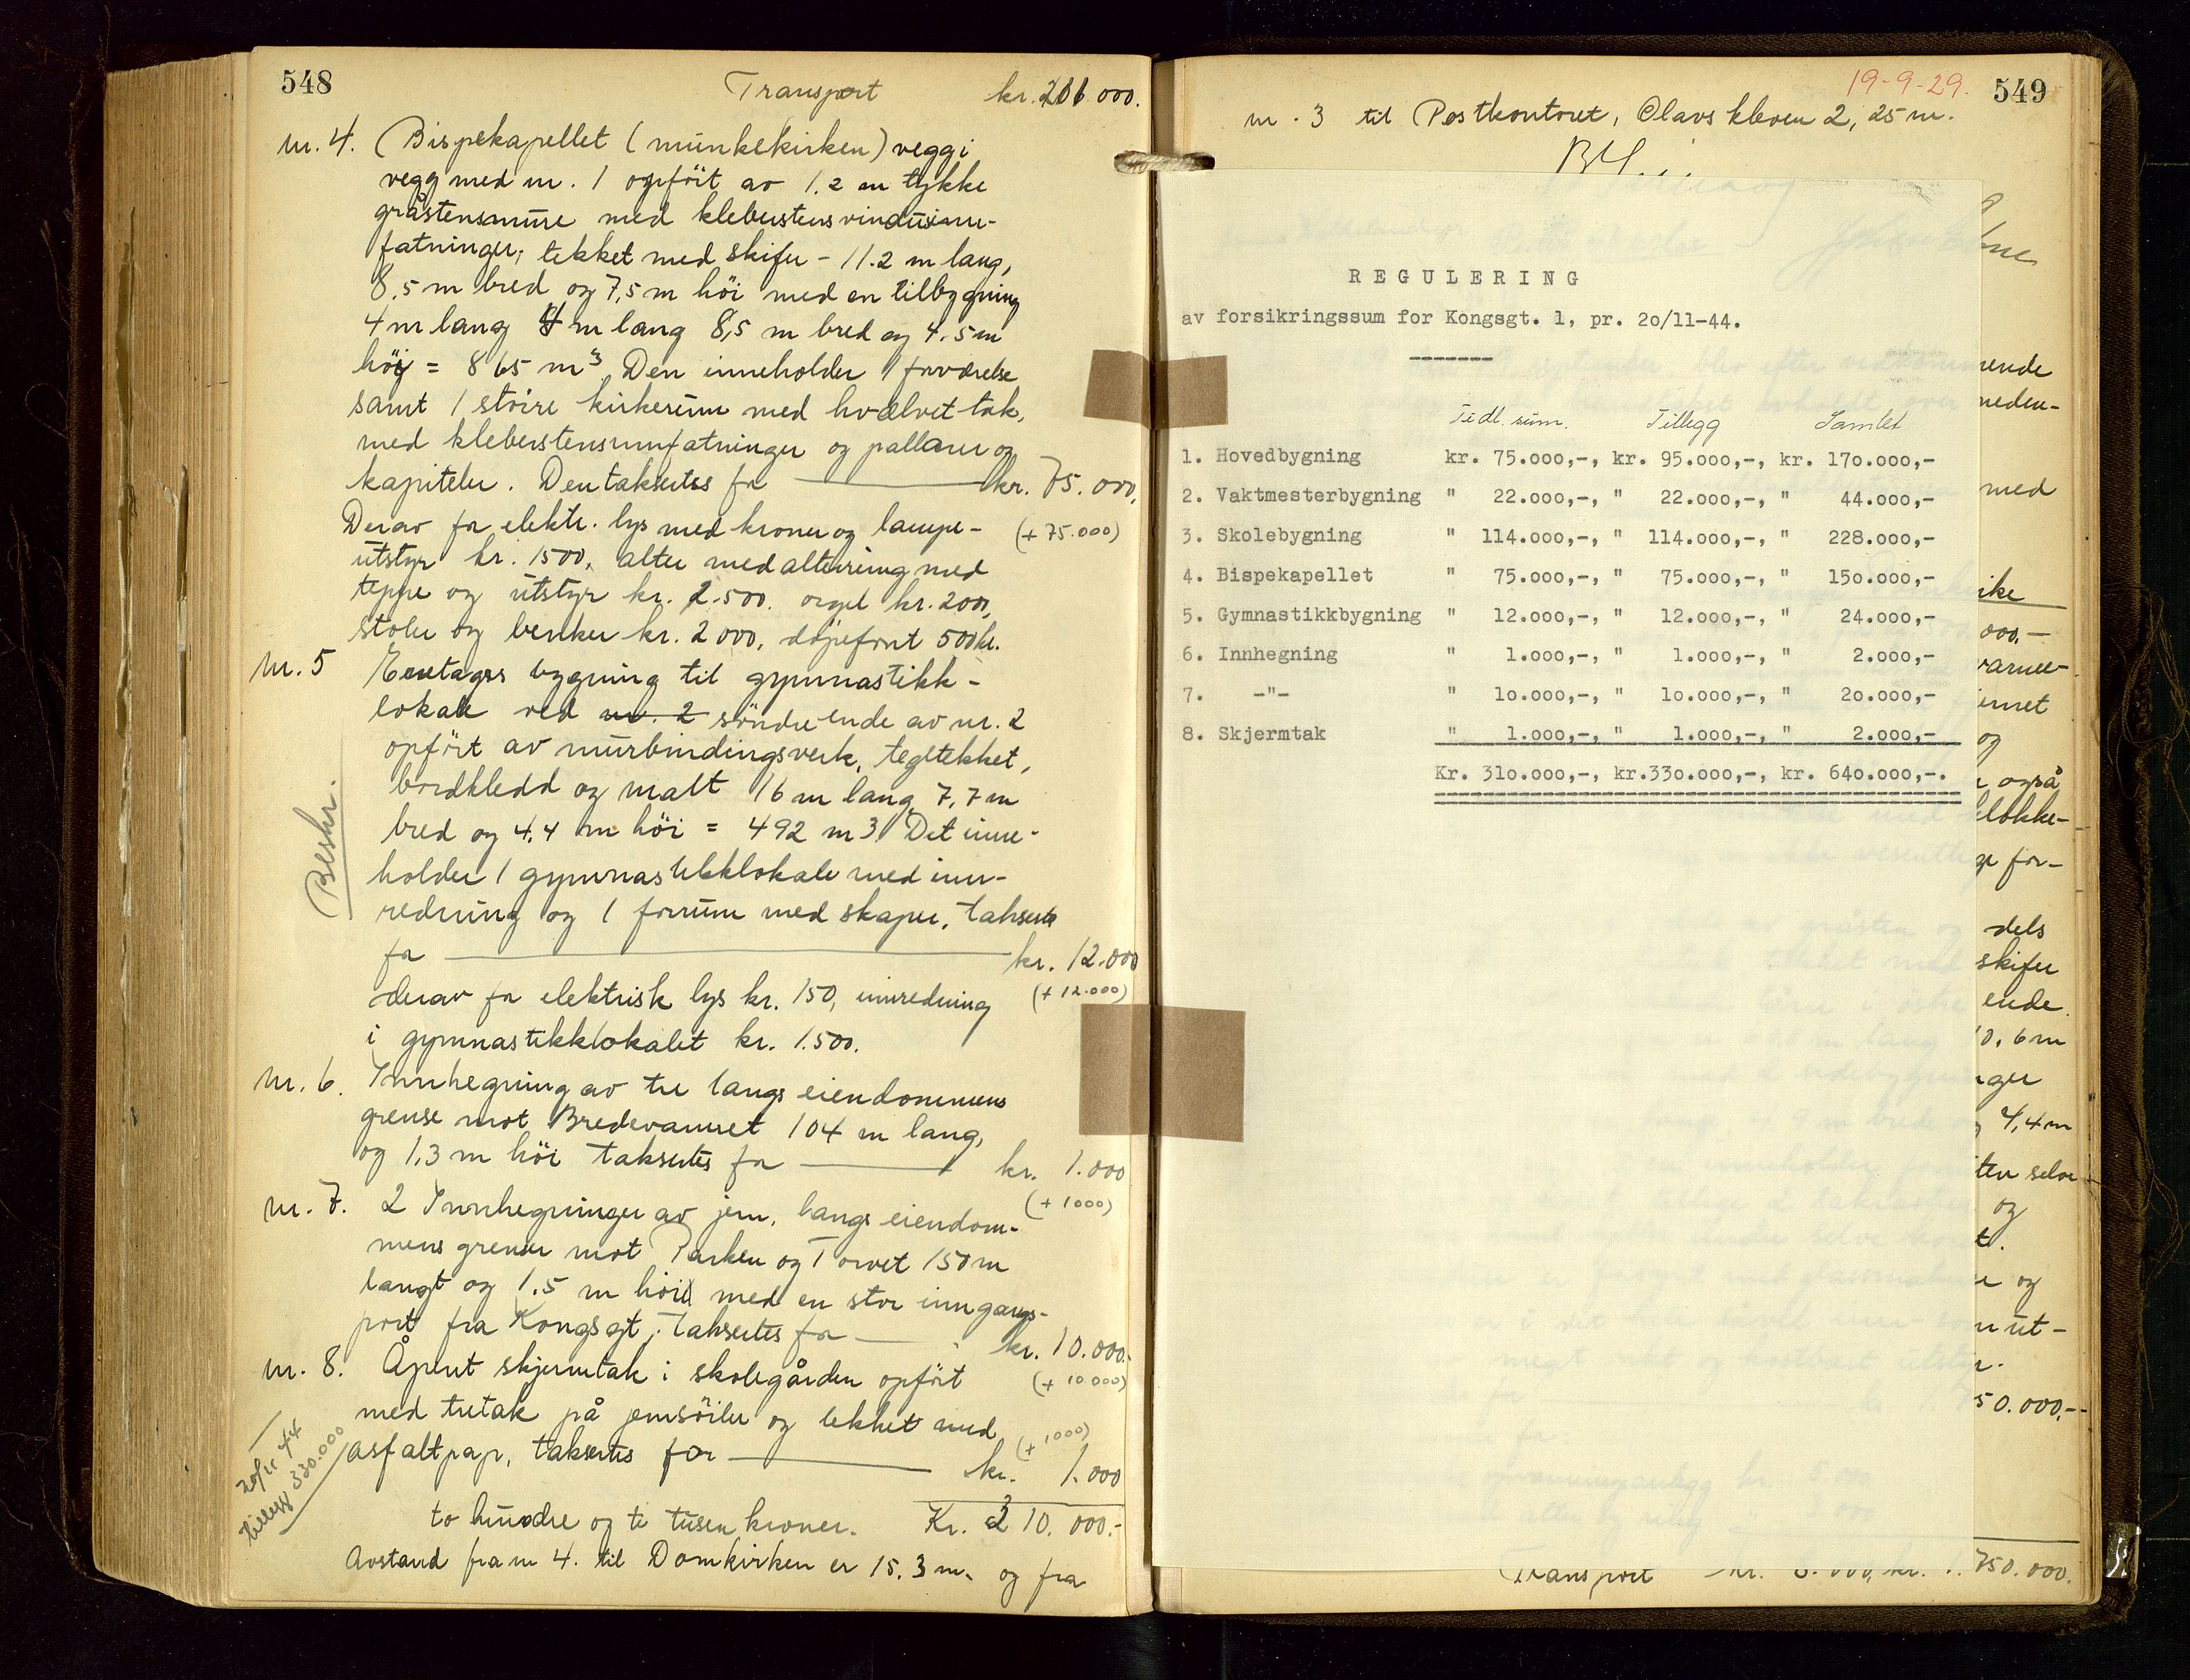 548
Transport kr. 211 000.
nr. 4. Bispekapellet (munkekirken) vegg i
vegg med nr. 1 opført av 1.2 m tykke
gråstensmure med kleberstens vindusinn-
fatninger, tekket med skifer - 11.2 m lang,
8.5 m bred og 7,5 m höi med en tilbygning
4 m lang 4 m lang 8,5 m bred og 4.5 m
höi = 865 m3. Den inneholder 1 forværelse
samt 1 större kirkerum med hvælvet tak,
med kleberstensinnfatninger og pallarer og
kapiteler. Den takseres for kr. 75.000,
Derav for elektr. lys med kroner og lampe- (+ 75.000)
utstyr kr. 1500, alter med alterring med
teppe og utstyr kr. 2.500. orgel kr. 2000,
stoler og benker kr. 2 000, döpefont 500 kr.
Nr. 5 Enetages bygning til gymnastikk-
lokale ved nr. 2 söndre ende av nr. 2
opfört av murbindingsverk, tegltekket,
bordkledd og malt 16 m lang, 7,7 m
bred og 4,4 m höi = 492 m3. Det inne-
Beskr.
holder 1 gymnastikklokale med inn-
redning og 1 forrum med skaper, takseres
for kr. 12.000
derav for elektrisk lys kr. 150, innredning (+ 12.000)
i gymnastikklokalet kr. 1.500.
Nr. 6. Innhegning av tre langs eiendommens
grense mot Bredevannet 104 m lang,
og 1,3 m höi takseres for kr. 1.000
(+ 1000)
nr. 7. 2 Innhegninger av jern, langs eiendom-
mens grenser mot Parken og Torvet 150 m
langt og 1.5 m höi med en stor inngangs-
port fra Kongsgt. Takseres for kr. 10.000.
nr. 8. Åpent skjermtak i skolegården opfört (+ 10.000)
med tretak på jernsöiler og tekket med
asfaltpap, takseres for kr. 1.000
(+ 1000)
20/11 44
tillegg 330.000
to hundre og ti tusen kroner. Kr. 310.000.-
Avstand fra nr 4. til Domkirken er 15.3 m. og fra
19-9-29. 549
nr. 3 til Postkontoret, Olavs kleven 2, 25 m.
REGULERING
av forsikringssum for Kongsgt. 1, pr. 20/11-44.
Tidl. sum. Tillegg Samlet
1. Hovedbygning kr. 75.000,-, kr. 95.000,-, kr. 170.000,-
2. Vaktmesterbygning " 22.000,-, " 22.000,-, " 44.000,-
3. Skolebygning " 114.000,-, " 114.000,-, " 228.000,-
4. Bispekapellet " 75.000,-, " 75.000,-, " 150.000,-
5. Gymnastikkbygning " 12.000,-, " 12.000,-, " 24.000,-
6. Innhegning " 1.000,-, " 1.000,-, " 2.000,-
7. -"- " 10.000,-, " 10.000,-, " 20.000,-
8. Skjermtak " 1.000,-, " 1.000,-, " 2.000,-
Kr. 310.000,-, kr.330.000,-, kr. 640.000,-.
med
000.-
og
også
klokke-
dels
skifer
ende
10,6 m
4,4 m
selve
og
og
50.000,-
Transport kr. 750.000.